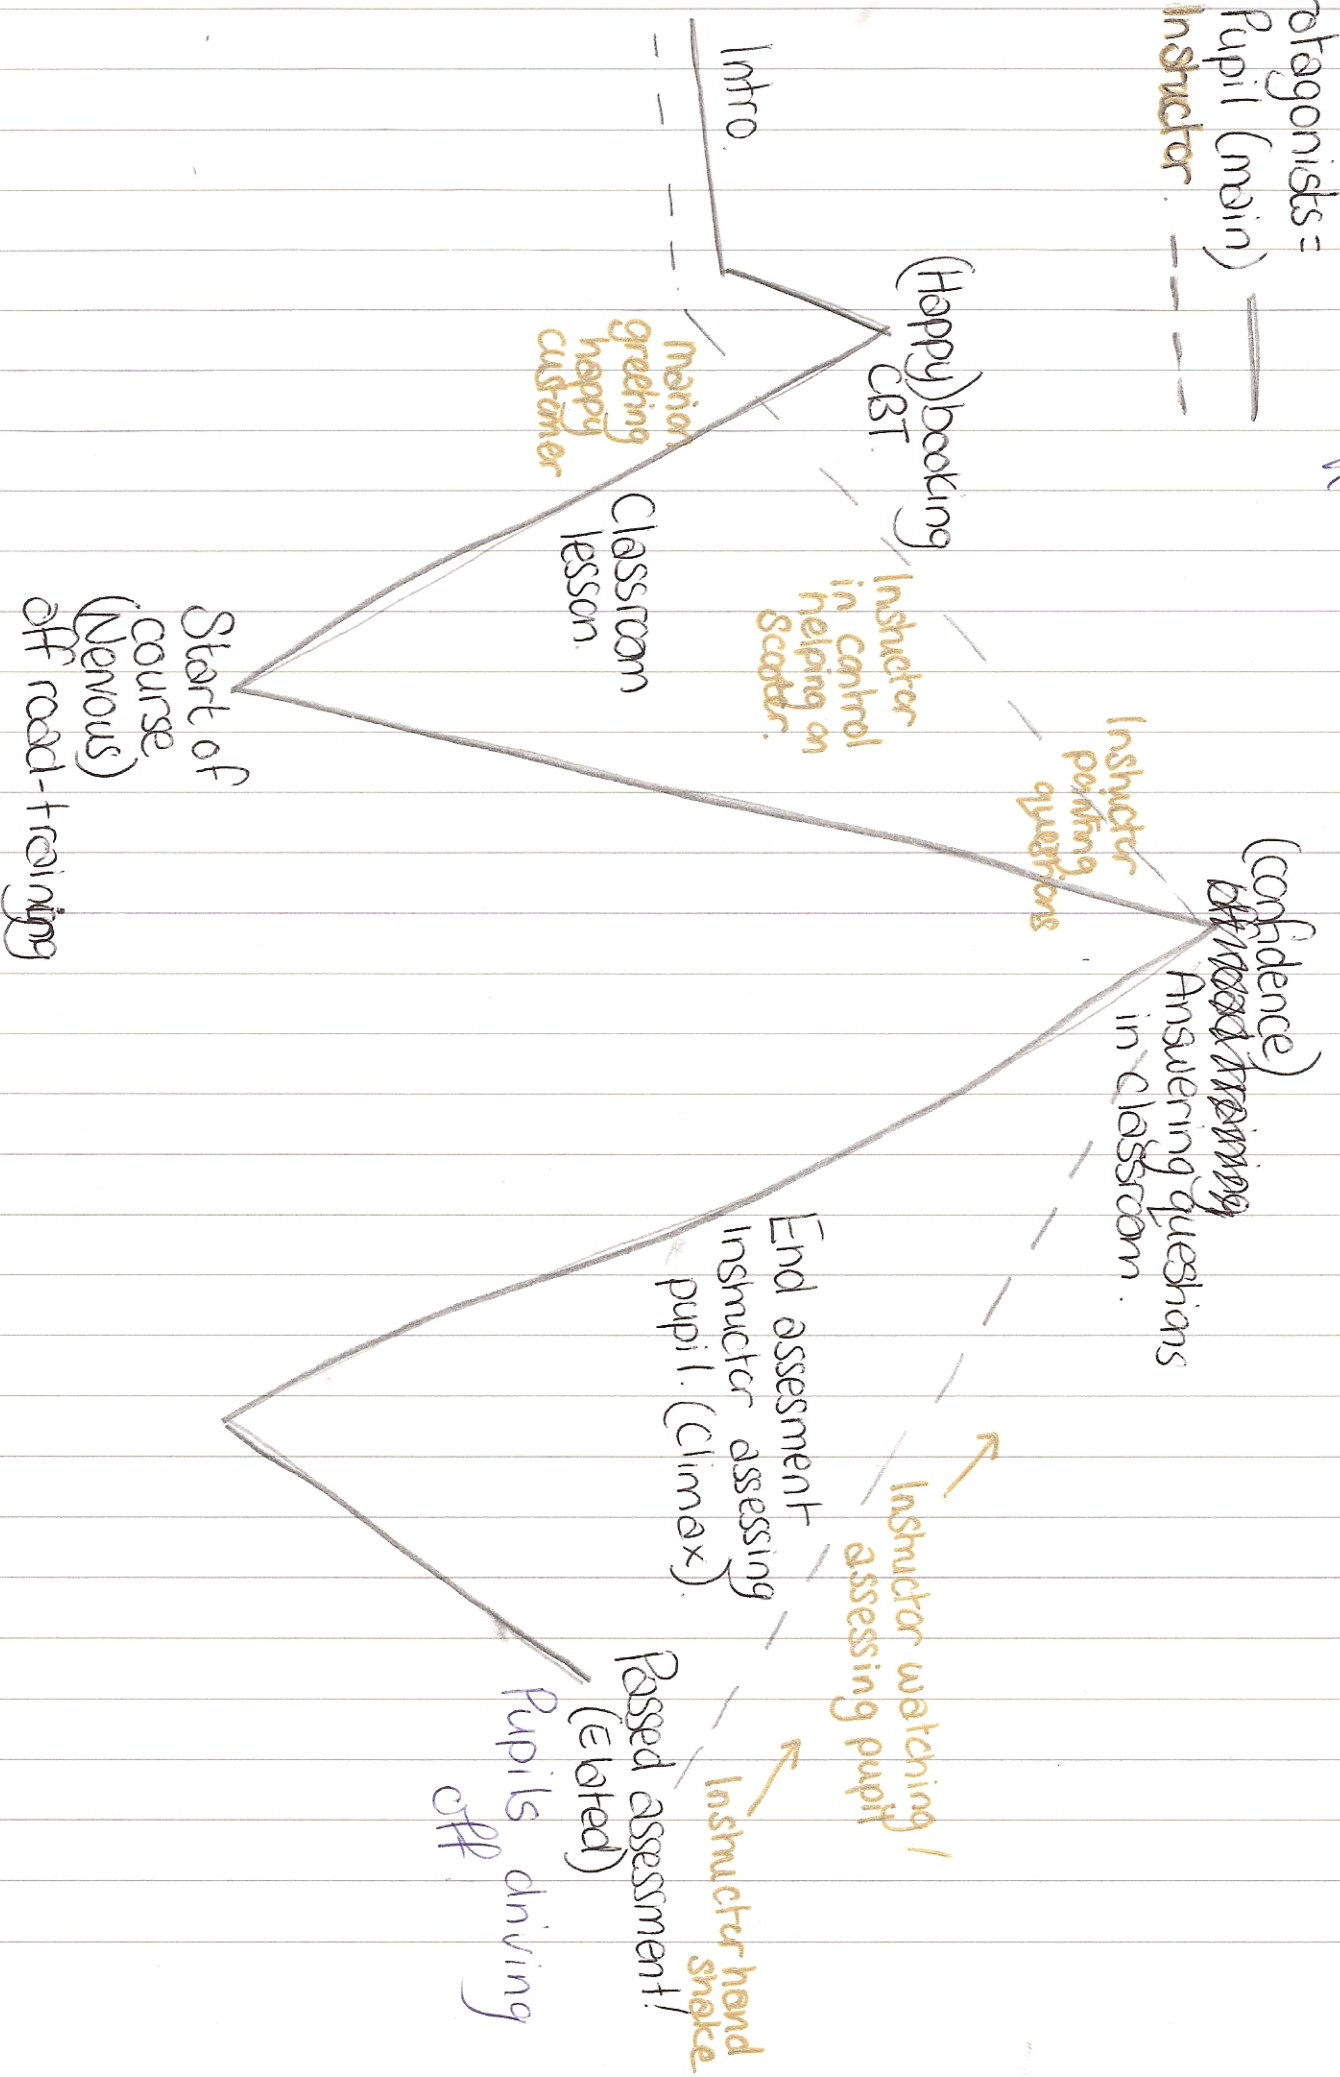 rotagonists =
Pupil (main)
Instuctor
Intro.
(Happy) booking
CBT.
marion
greeting
happy
custimer
Classroom
lesson.
Instuctor
in control
helping on
Scooter.
Start of
course
(Nervous)
off road-training
Instuctor
questions
(confidence)
Answering questions
in classroom.
End assesment
Instructor assessing
pupil. (Climax)
Instuctor watching/
assessing pupil
Instucter hand
shake
Passed assessment!
(Elated)
Pupils driving
off